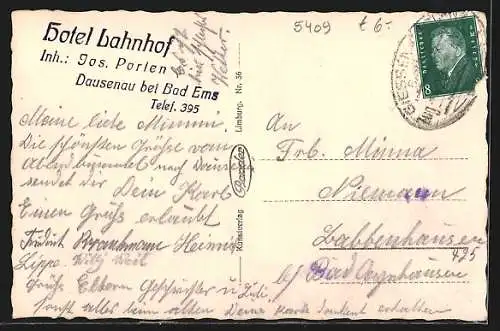 Hotel Lahnhof
Inh.: Jos. Porten
Dausenau bei Bad Ems
Telef. 395
5409 £ 6-
DEUTSCHES REICH
8
GIESSEN
Meine liebe Mimmi.
Die schönsten Grüße vom
nach
sendet dir Dein Karl
Einen Gruß erlaubt
Heinrich
Lippe. Willi Weil
Grüße Eltern Geschwister u.
sonst alles beim alten Deine Karte dankend erhalten
Limburg. Nr. 36
Kunstverlag
An
Frl. Minna
Niemann
Babbenhausen
495
b/ Bad Oeynhausen